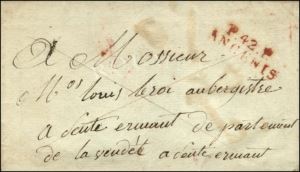 P. 42. P.
ANCENIS
A Monsieur
Mos louis leroi aubergistre
a Sente ermant de partement
de la vendée a Sente ermant